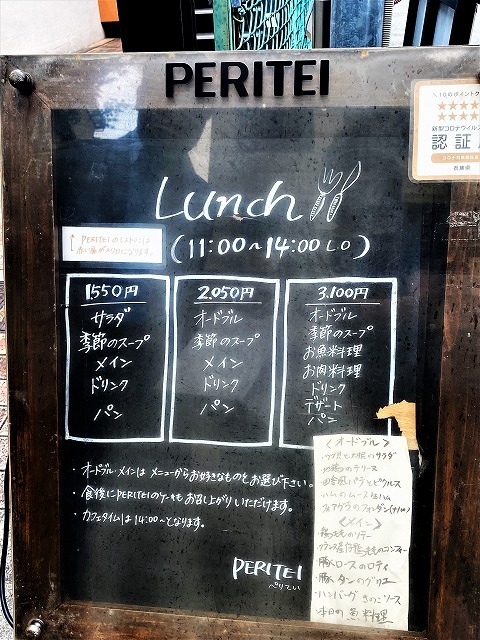 PERITEI
＼10のポイントク
★★★★
★★★★
新型コロナウイルス
認証
兵庫県
Lunch
(11:00~14:00 LO)
↑ PERITEIのレストランは
1550円
サラダ
季節のスープ
メイン
ドリンク
パン
2.050円
オードブル
季節のスープ
メイン
ドリンク
パン
3.100円
オードブル
季節のスープ
お魚料理
お肉料理
ドリンク
デザート
パン
・オードブル・メインは メニューからお好きなものをお選び下さい。
・食後にPERITEIのケーキもお召し上がりいただけます。
・カフェタイムは14:00~となります。
PERITEI
ぺりてい
<オードブル>
のサラダ
地鶏のテリーヌ
ピクルス
ハムのムース 生ハム
フォアグラのフォンダン
<メイン>
鶏もものソテー
フランス産仔鴨ももものコンフィー
豚ロースのロティ
豚タンのグリエ
ハンバーグきのこソース
本日の魚料理